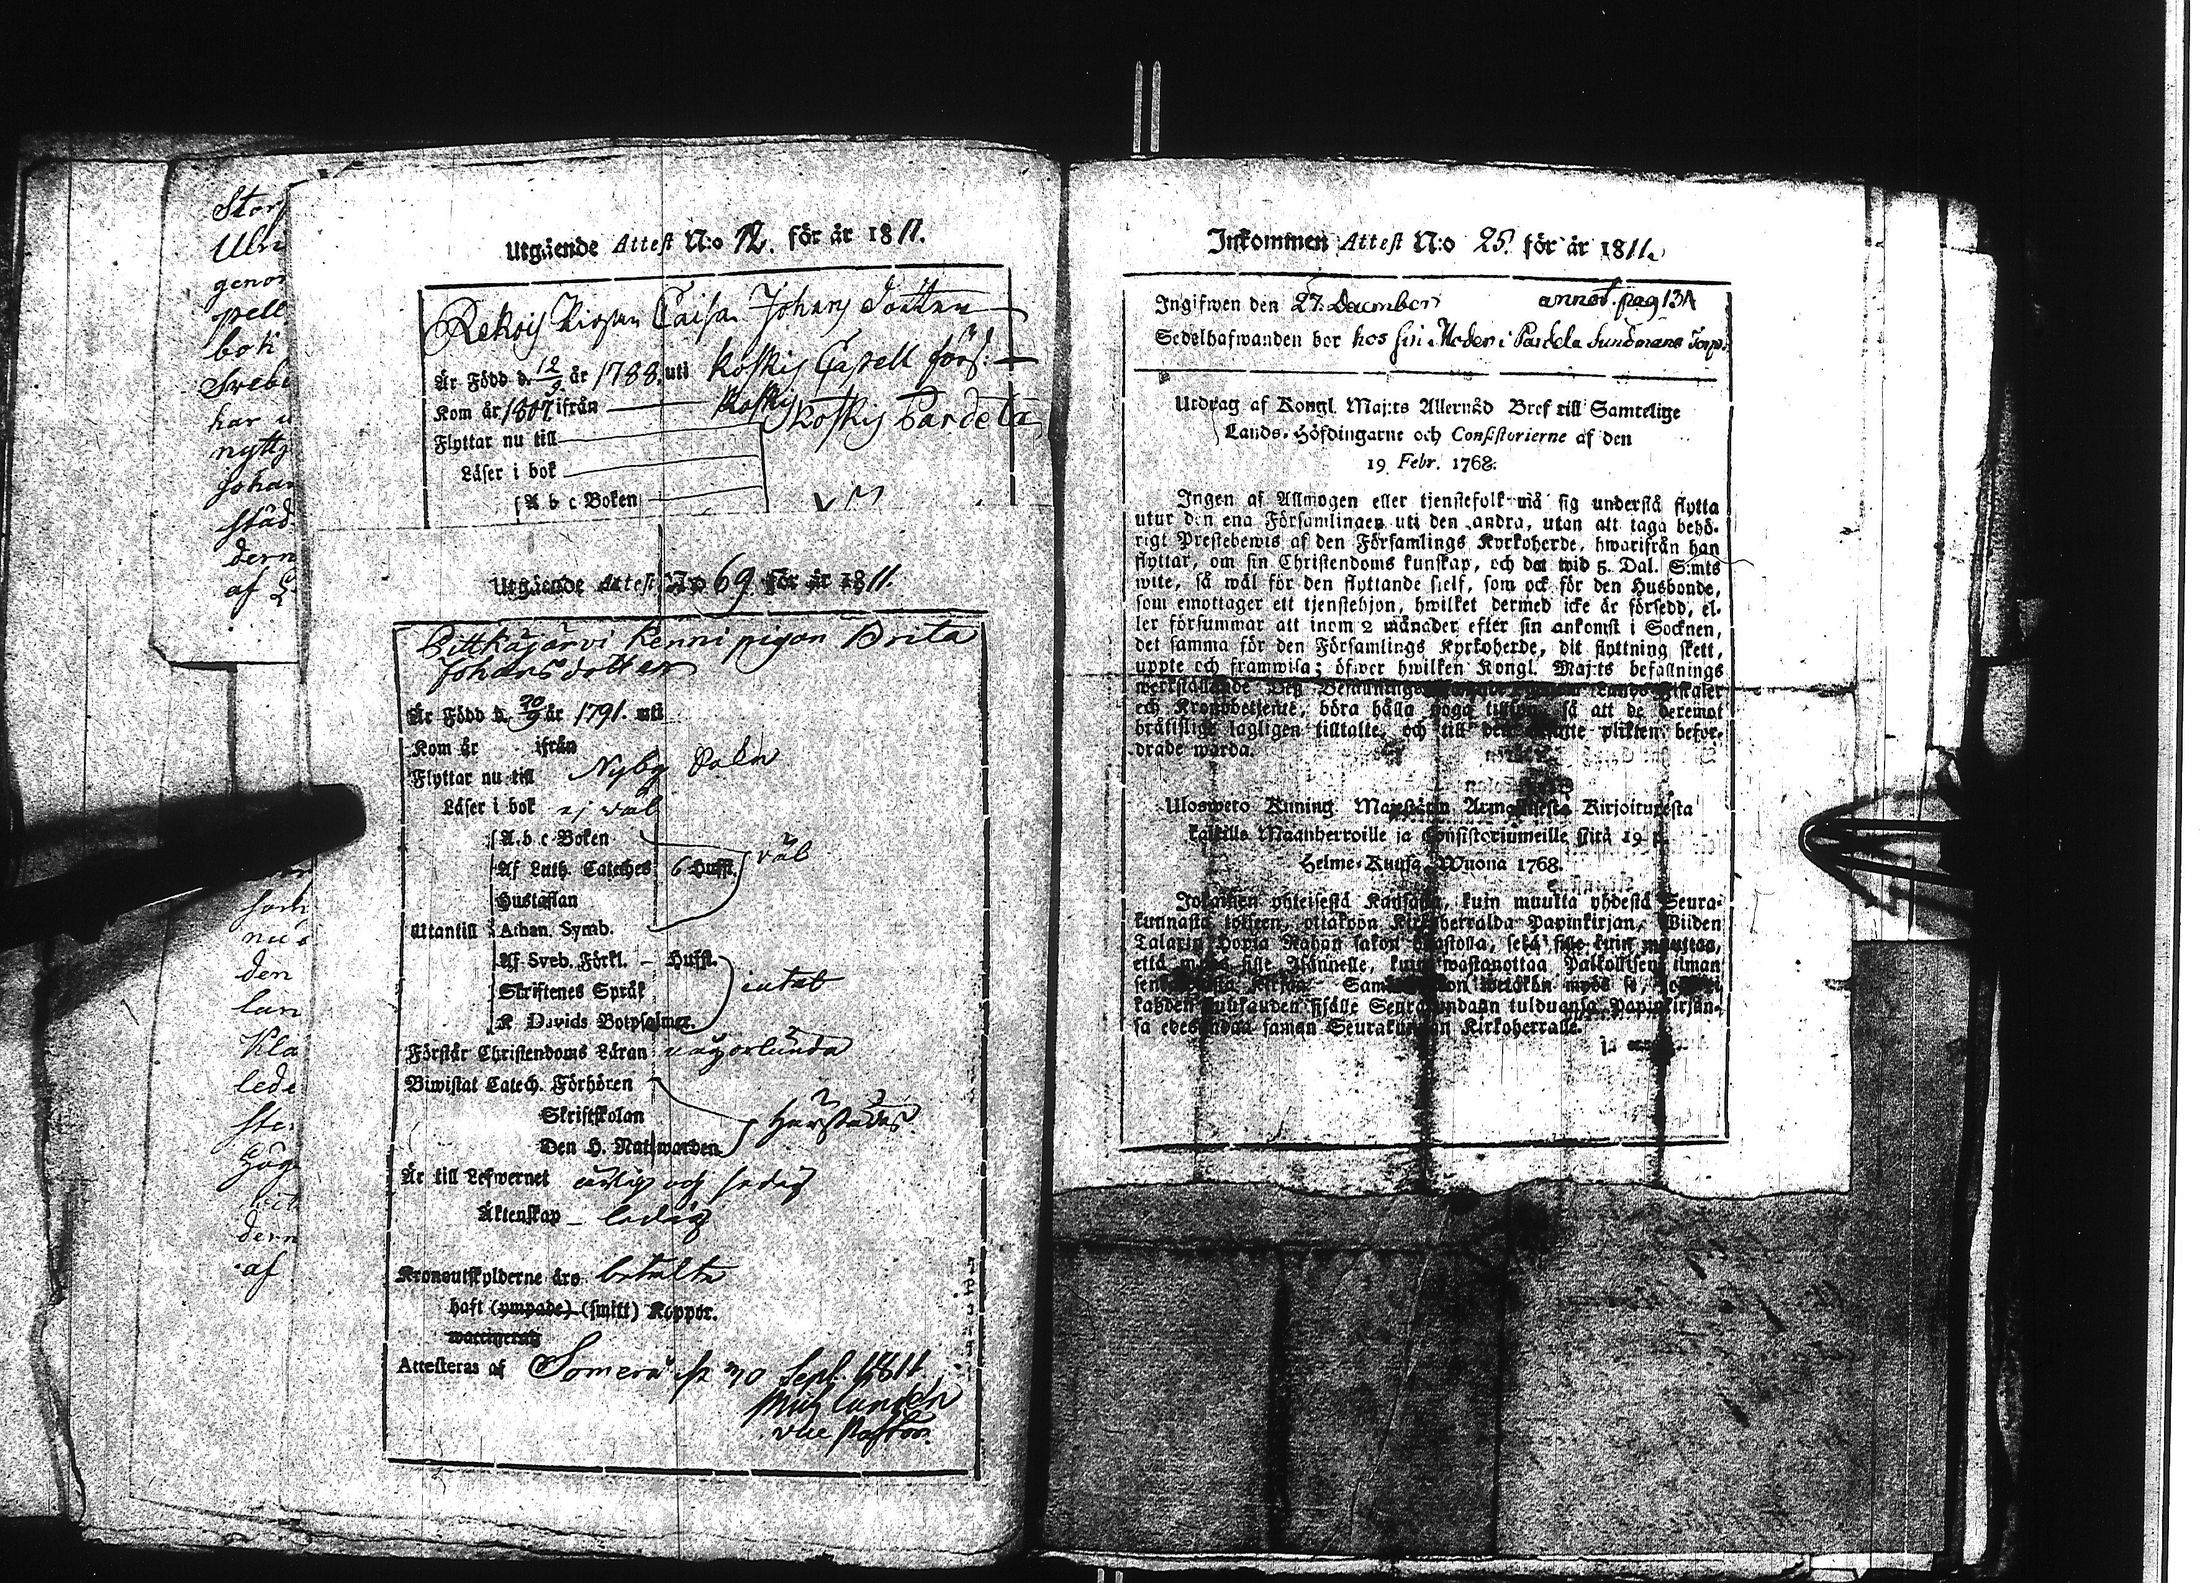 Stor
Ulri
genom
pell
bok
Sveb
har u
nyttj
Johan
städ
dern
af
Utgående Attest N:o 12. för år 1811.
Rekois Pigan Caisa Johans Dotter
Är Född d. 12/9 år 1788. uti Koskis Capell förs.
Kom år 1807 ifrån Koskis
Flyttar nu till Koskis Pardela
Läser i bok
A b c Boken
Utgående Attest N:o 69 för år 1811.
Pitkäjärvi Kenni pigan Brita
Johansdotter
Är Född d. 20/9 år 1791. uti
Kom år ifrån
Flyttar nu till Nyby
Läser i bok ej väl
A. b c Boken
Af Luth. Cateches 6 Hufst. väl
Hustaflan
Uttantill Athan. Symb.
Af Sveb. Förkl. – Hufst.
Skriftenes Språk intet
K. Davids Botpsalmer.
Förstår Christendoms Läran någorlunda
Biwistat Catech. Förhören
Skriftskolan härstädes
Den H. Nattwarden
Är till Lefwernet ärlig och sedig
Äktenskap – ledig
Kronoutskylderne äro betalte
haft (ympade) (smitt) Koppor.
Attesteras af Somero 30 Sept. 1811.
vice Pastor.
som
nu
den
lan
Kla
lede
dern
af
Inkommen Attest N:o 25. för år 1811.
Ingifwen den 27. December annot. pag 131
Sedelhafwanden bor hos sin Moder i Pardela Sundmans Torp.
Utdrag af Kongl. Maj:ts Allernåd Bref till Samtelige
Lands-Höfdingarne och Consistorierne af den
19 Febr. 1768.
Ingen af Allmogen eller tjenstefolk må sig understå flytta
utur den ena Församlingen uti den andra, utan att taga behö-
rigt Prestebewis af den Församlings Kyrkoherde, hwarifrån han
flyttar, om sin Christendoms kunskap, och det wid 5. Dal. S:mts
wite, så wäl för den flyttande sjelf, som ock för den Husbonde,
som emottager ett tjenstehjon, hwilket dermed icke är försedd, el-
ler försummar att inom 2 månader efter sin ankomst i Socknen,
det samma för den Församlings Kyrkoherde, dit flyttning skett,
uppte och framwisa; öfwer hwilken Kongl. Maj:ts befallnings
werkställande
och Kronobetjente, böra hålla noga så att de deremot
brätslige lagligen tilltalte, och till plikten befor-
drade warda.
Ulosweto Kuning. Majestätin Armollisesta Kirjoituxesta
kaikille Maanherroille ja Consistoriumeille siitä 19 p.
Helme-Kuusa Wuona 1768.
Jokainen yhteisestä Kansasta, kuin muutta yhdestä Seura-
kunnasta toiseen, ottakoon Kirkoherralda Papinkirjan, Wiiden
Talarin Hopia Rahan sakon uhastolla, sekä sille kuin muuttaa,
että sille Isännelle, kuin wastanottaa Palkollisen ilman
kahden kuukauden sisälle Seurakundaan tulduansa Papinkirjan-
sa edes saman Seurakunnan Kirkoherralle.